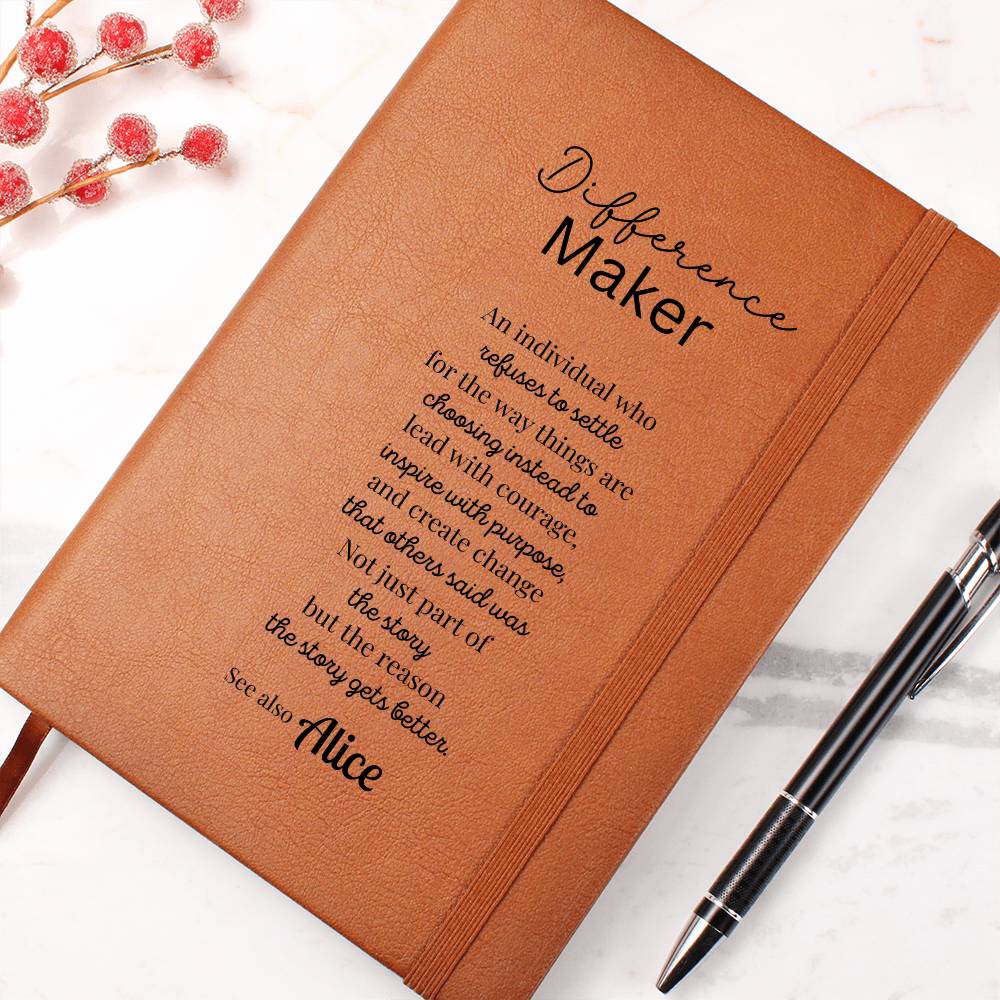 Difference
Maker
An individual who
refuses to settle
for the way things are
choosing instead to
lead with courage,
inspire with purpose,
and create change
that others said was
Not just part of
the story
but the reason
the story gets better.
See also Alice